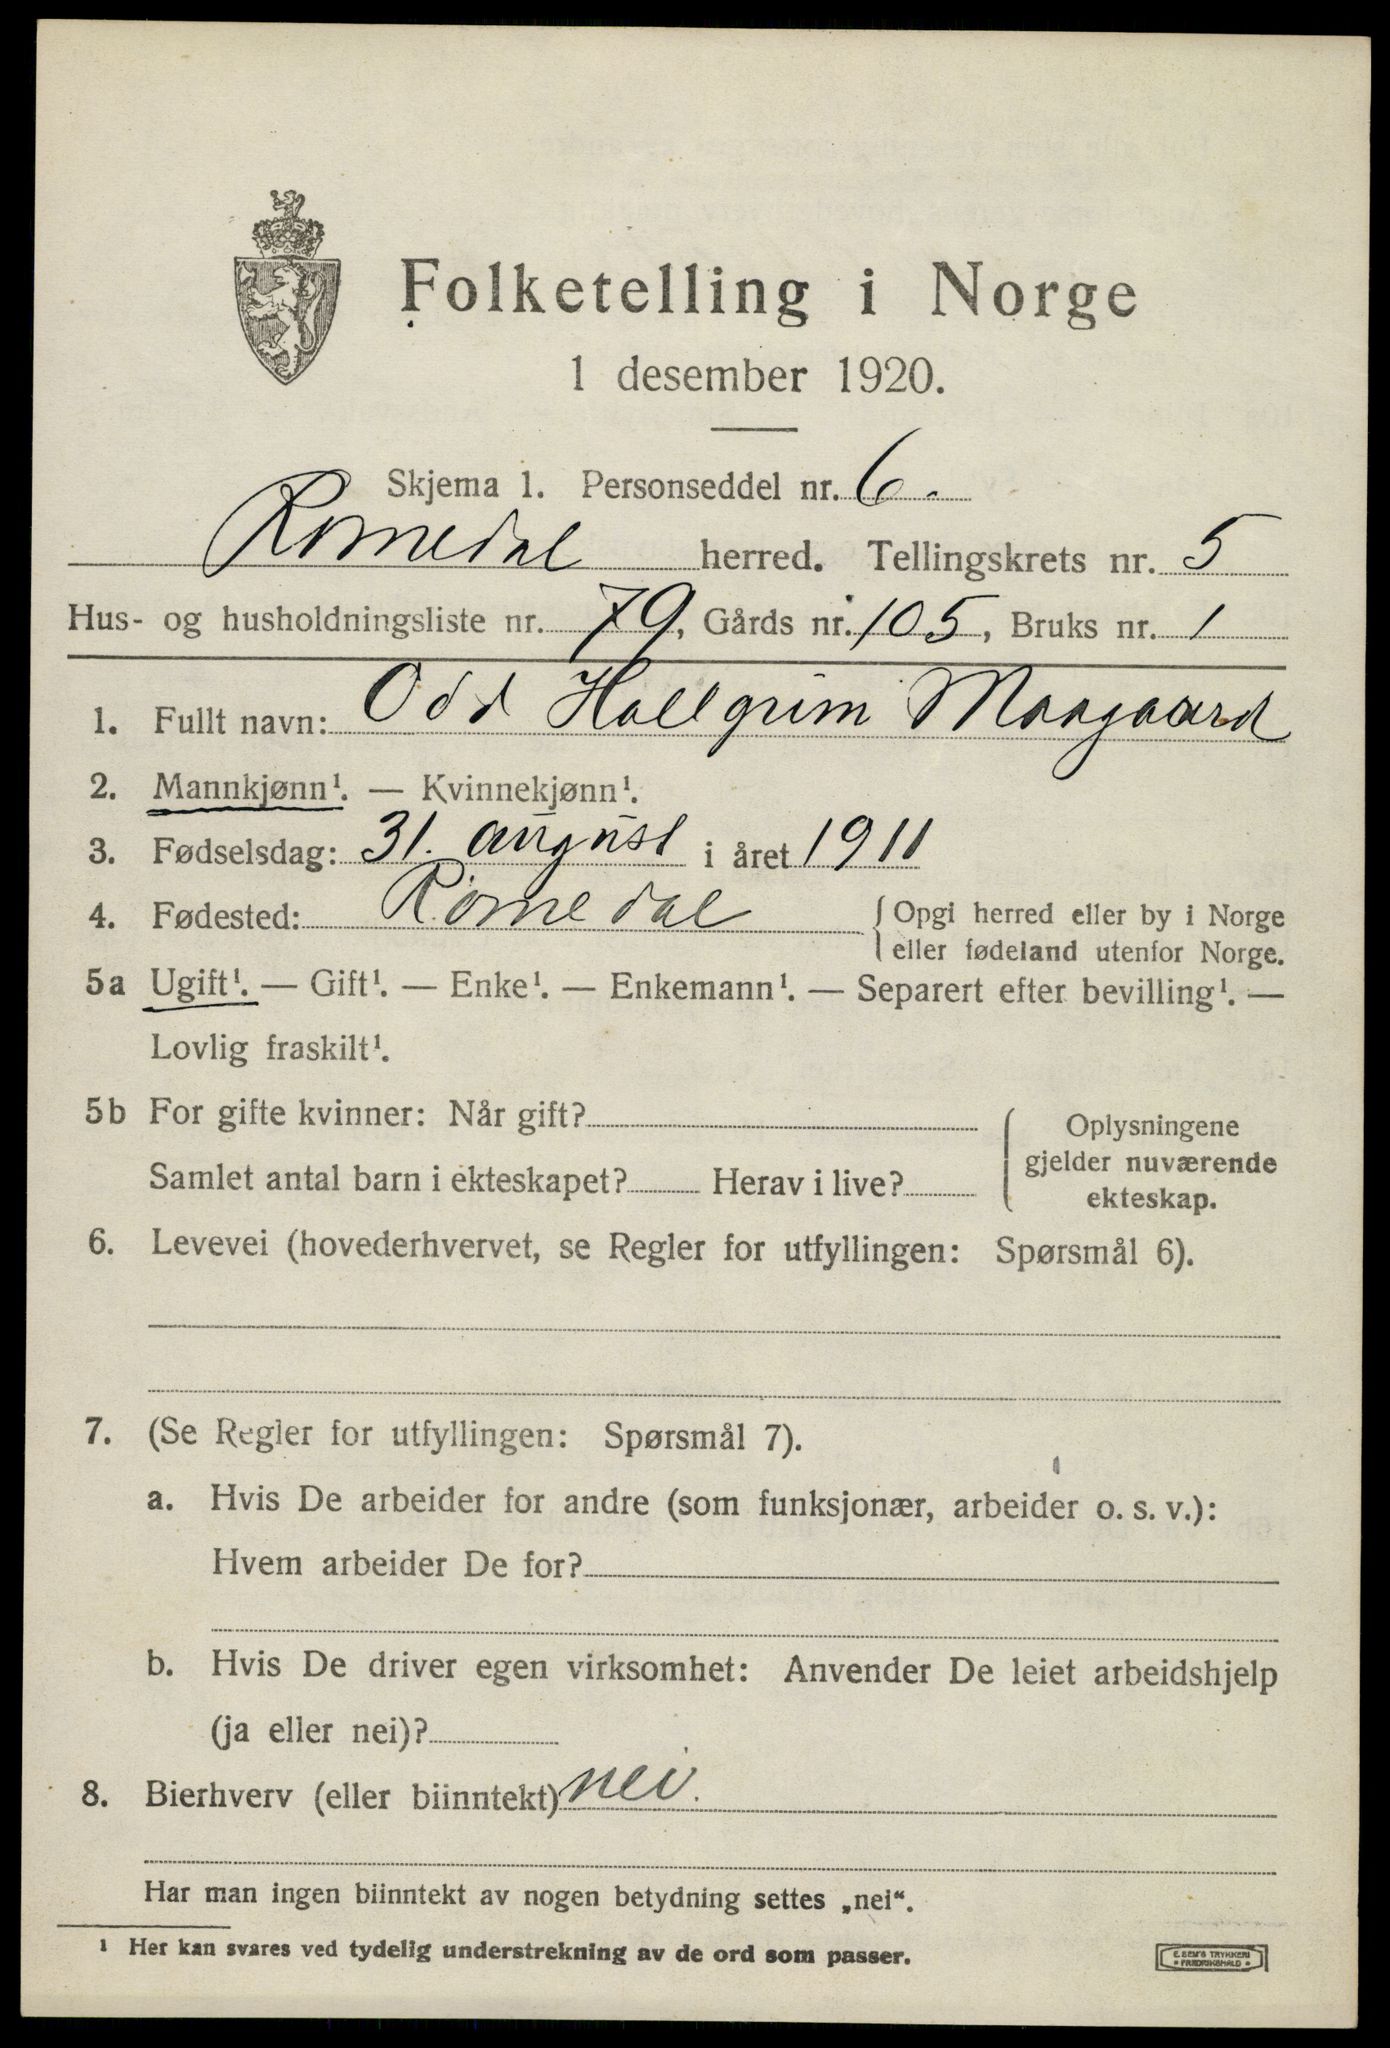 Folketelling i Norge
1 desember 1920.
Skjema 1. Personseddel nr. 6.
Romedal herred. Tellingskrets nr. 5
Hus- og husholdningsliste nr. 79, Gårds nr. 105, Bruks nr. 1
1. Fullt navn: Odd Hallgrim Maagaard
2. Mannkjønn¹. — Kvinnekjønn¹.
3. Fødselsdag: 31. august i året 1911
4. Fødested: Romedal { Opgi herred eller by i Norge
eller fødeland utenfor Norge.
5a Ugift¹. — Gift¹. — Enke¹. — Enkemann¹. — Separert efter bevilling¹. —
Lovlig fraskilt¹.
5b For gifte kvinner: Når gift?
Samlet antal barn i ekteskapet? Herav i live?
Oplysningene
gjelder nuværende
ekteskap.
6. Levevei (hovederhvervet, se Regler for utfyllingen: Spørsmål 6).
7. (Se Regler for utfyllingen: Spørsmål 7).
a. Hvis De arbeider for andre (som funksjonær, arbeider o. s. v.):
Hvem arbeider De for?
b. Hvis De driver egen virksomhet: Anvender De leiet arbeidshjelp
(ja eller nei)?
8. Bierhverv (eller biinntekt) nei.
Har man ingen biinntekt av nogen betydning settes „nei“.
¹ Her kan svares ved tydelig understrekning av de ord som passer.
E. SEM'S TRYKKERI
• FREDRIKSHALD •